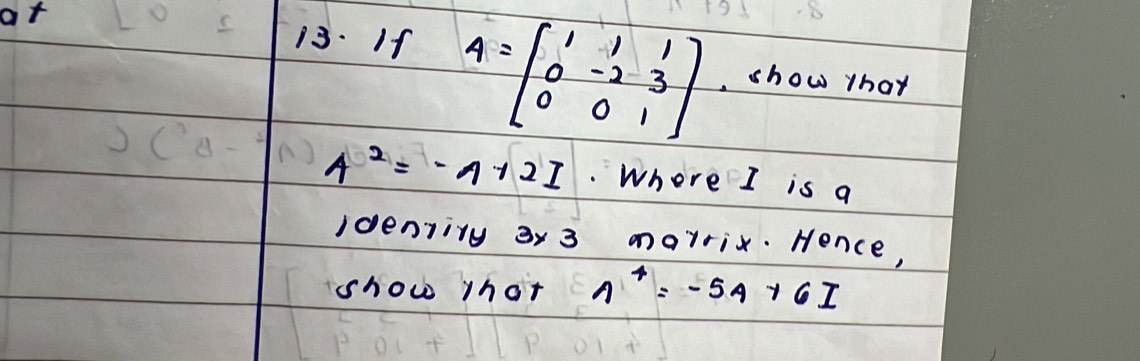 at
13. If A = [ 1 1 1
0 -2 3
0 0 1 ] . show that
A² = -A + 2I . Where I is a
identity 3x3 matrix. Hence,
show that A⁴ = -5A + 6I